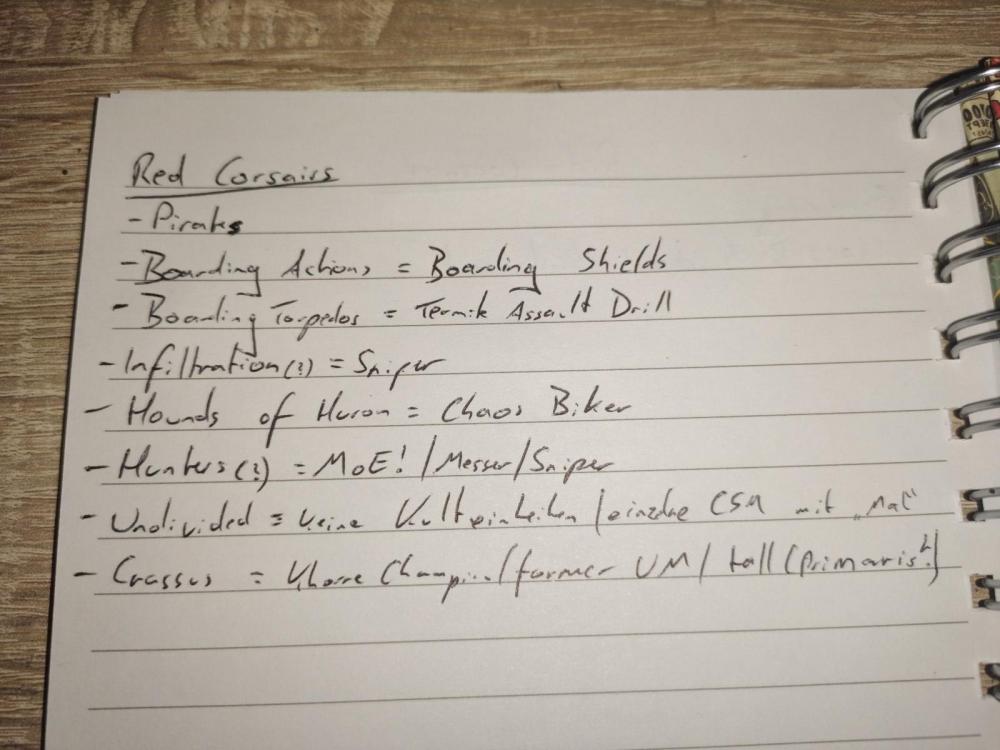 Red Corsairs
- Pirates
- Boarding Actions = Boarding Shields
- Boarding Torpedos = Termite Assault Drill
- Infiltration(?) = Sniper
- Hounds of Huron = Chaos Biker
- Hunters(?) = MoE! / Messer / Sniper
- Undivided = keine Kulteinheiten / einzelne CSM mit „Mal"
- Crassus = Khorne Champion / former UM / tall (Primaris?)